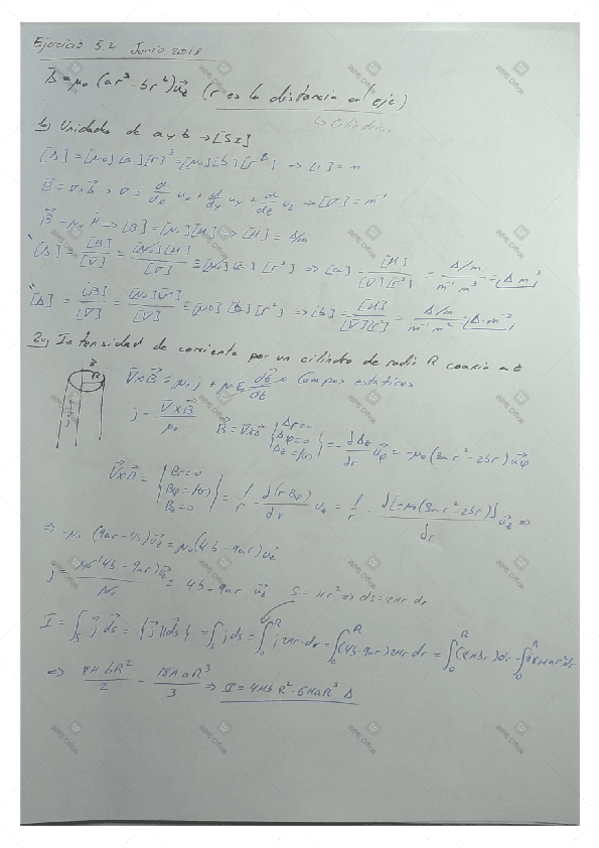 Ejercicio 5.2 Junio 2018
A = μ₀ (ar³ - br²) u⃗z (r es la distancia al eje)
Cilíndric.
1º) Unidades de a y b → [SI]
[A] = [μ₀][a][r]³ = [μ₀][b][r²] → [r] = m
B⃗ = ∇×A⃗ → ∇ = d/dx ux + d/dy uy + d/dz uz → [∇] = m⁻¹
B⃗ = μ₀ H⃗ → [B] = [μ₀][H] → [H] = A/m
[A] = [B]/[∇] = [μ₀][H]/[∇] = [μ₀][a][r³] → [a] = [H]/[∇][r³] = A/m / m⁻¹ m³ = [A·m⁻³]
[A] = [B]/[∇] = [μ₀][H]/[∇] = [μ₀][b][r²] → [b] = [H]/[∇][r²] = A/m / m⁻¹ m² = [A·m⁻²]
2º) Intensidad de corriente por un cilindro de radio R coaxial a z
z R ∇⃗×B⃗ = μ₀ j + μ₀ε₀ dE⃗/dt → 0 Campos estáticos
j = ∇×B⃗/μ₀ B⃗ = ∇×A⃗ { Ar=0 Aφ=0 Az=f(r) } = - dAz/dr u⃗φ = -μ₀ (3ar² - 2br) u⃗φ
∇×B⃗ = { Br=0 Bφ=f(r) Bz=0 } = 1/r · d(r Bφ)/dr uz = 1/r · d[-μ₀(3ar² - 2br)]/dr u⃗z ⇒
⇒ -μ₀ (9ar - 4b) u⃗z = μ₀ (4b - 9ar) u⃗z
j = μ₀(4b - 9ar) u⃗z/μ₀ = 4b - 9ar u⃗z S = πr² ⇒ ds = 2πr dr
I = ∫s j⃗ ds⃗ = {j⃗ || ds⃗} = ∫s j ds = ∫₀ᴿ j 2πr·dr = ∫₀ᴿ (4b - 9ar) 2πr dr = ∫₀ᴿ (8πbr) dr - ∫₀ᴿ 18πar² dr
⇒ 8πbR²/2 - 18πaR³/3 ⇒ I = 4πbR² - 6πaR³ A
WPS Office